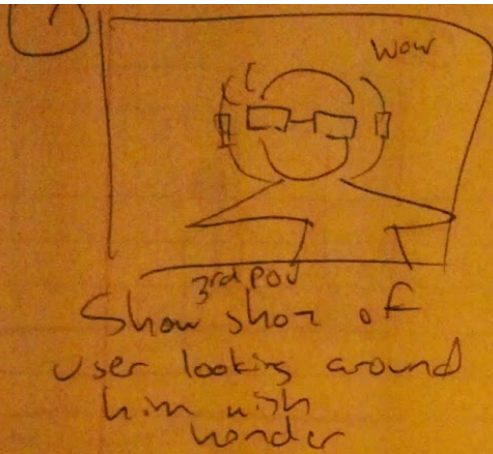 Wow
3rd POV
Show shot of
User looking around
him with
wonder